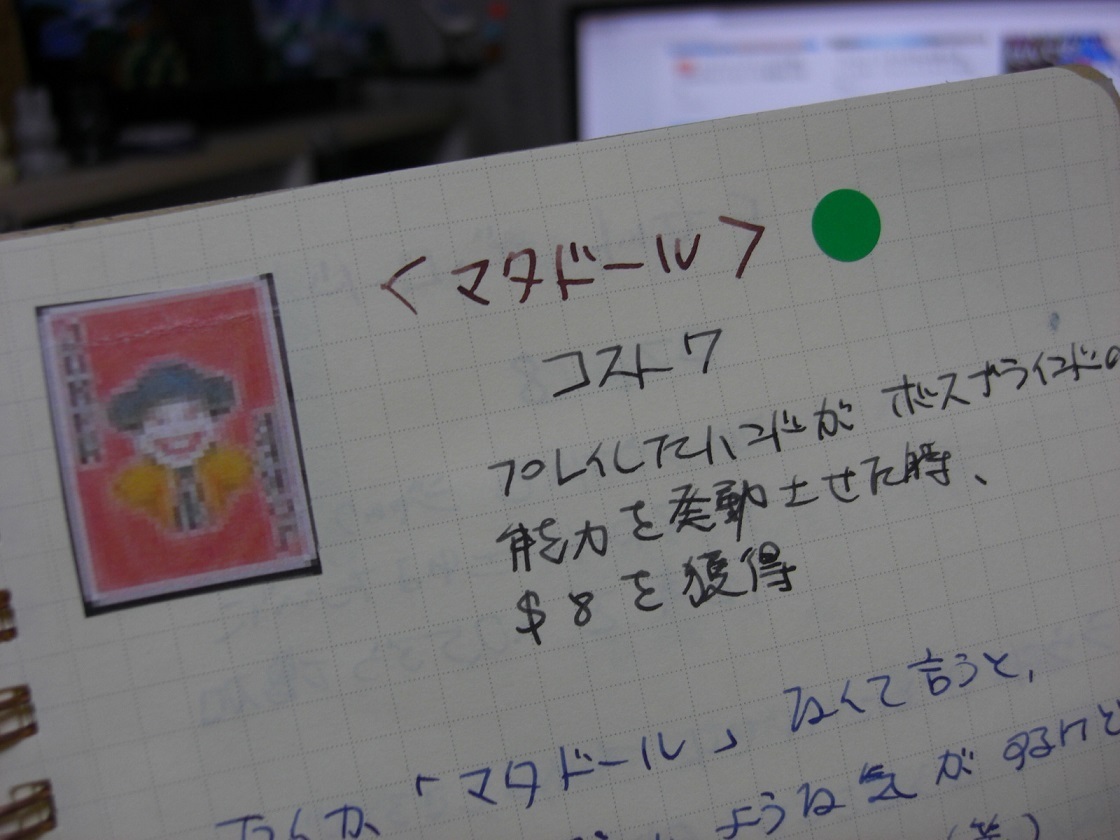 <マタドール>
コスト7
プレイしたハンドが ボスブラインドの
能力を発動させた時、
$8を獲得
なんか「マタドール」なくて言うと、
ような気がするけど
(笑)